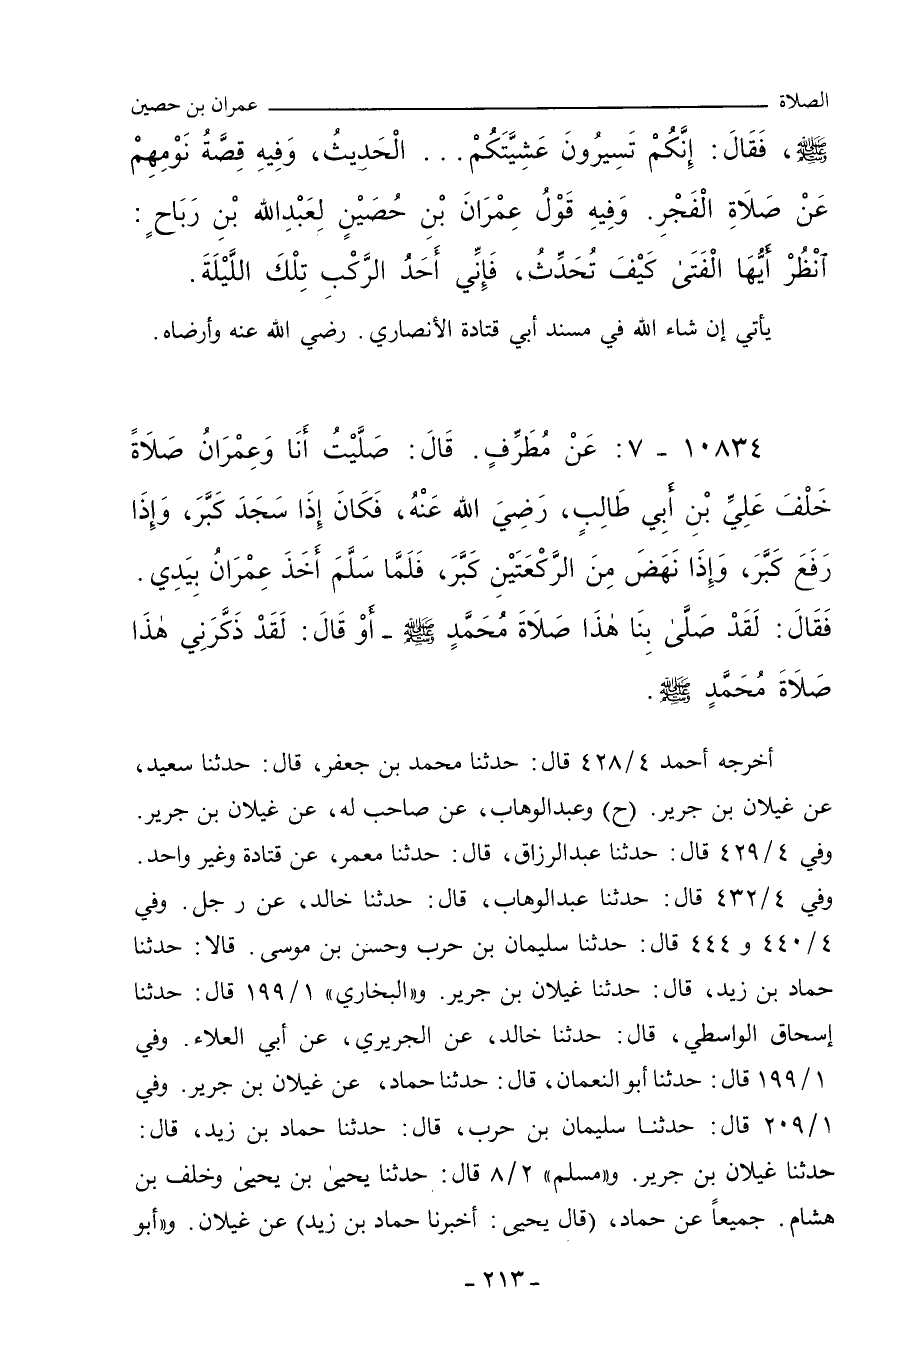 الصلاة ــــــــــ عمران بن حصين
ﷺ، فَقَالَ: إِنَّكُمْ تَسِيرُونَ عَشِيَّتَكُمْ... الْحَدِيثُ، وَفِيهِ قِصَّةُ نَوْمِهِمْ
عَنْ صَلَاةِ الْفَجْرِ. وَفِيهِ قَوْلُ عِمْرَانَ بْنِ حُصَيْنٍ لِعَبْدِالله بْنِ رَبَاحٍ:
ٱنْظُرْ أَيُّهَا الْفَتَىٰ كَيْفَ تُحَدِّثُ، فَإِنِّي أَحَدُ الرَّكْبِ تِلْكَ اللَّيْلَةَ.
يأتي إن شاء الله في مسند أبي قتادة الأنصاري. رضي الله عنه وأرضاه.
١٠٨٣٤ - ٧: عَنْ مُطَرِّفٍ. قَالَ: صَلَّيْتُ أَنَا وَعِمْرَانُ صَلَاةً
خَلْفَ عَلِيِّ بْنِ أَبِي طَالِبٍ، رَضِيَ الله عَنْهُ، فَكَانَ إِذَا سَجَدَ كَبَّرَ، وَإِذَا
رَفَعَ كَبَّرَ، وَإِذَا نَهَضَ مِنَ الرَّكْعَتَيْنِ كَبَّرَ، فَلَمَّا سَلَّمَ أَخَذَ عِمْرَانُ بِيَدِي.
فَقَالَ: لَقَدْ صَلَّىٰ بِنَا هٰذَا صَلَاةَ مُحَمَّدٍ ﷺ - أَوْ قَالَ: لَقَدْ ذَكَّرَنِي هٰذَا
صَلَاةَ مُحَمَّدٍ ﷺ.
أخرجه أحمد ٤٢٨/٤ قال: حدثنا محمد بن جعفر، قال: حدثنا سعيد،
عن غيلان بن جرير. (ح) وعبدالوهاب، عن صاحب له، عن غيلان بن جرير.
وفي ٤٢٩/٤ قال: حدثنا عبدالرزاق، قال: حدثنا معمر، عن قتادة وغير واحد.
وفي ٤٣٢/٤ قال: حدثنا عبدالوهاب، قال: حدثنا خالد، عن ر جل. وفي
٤٤٠/٤ و ٤٤٤ قال: حدثنا سليمان بن حرب وحسن بن موسى. قالا: حدثنا
حماد بن زيد، قال: حدثنا غيلان بن جرير. و«البخاري» ١٩٩/١ قال: حدثنا
إسحاق الواسطي، قال: حدثنا خالد، عن الجريري، عن أبي العلاء. وفي
١٩٩/١ قال: حدثنا أبو النعمان، قال: حدثنا حماد، عن غيلان بن جرير. وفي
٢٠٩/١ قال: حدثنا سليمان بن حرب، قال: حدثنا حماد بن زيد، قال:
حدثنا غيلان بن جرير. و«مسلم» ٨/٢ قال: حدثنا يحيىٰ بن يحيىٰ وخلف بن
هشام. جميعاً عن حماد، (قال يحيى: أخبرنا حماد بن زيد) عن غيلان. و«أبو
- ٢١٣ -